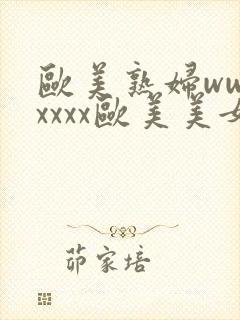 歐美熟婦ww
xxxx歐美美女
茆家培